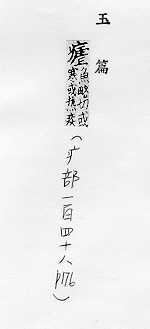 玉篇
瘧魚略切或
寒或熱疫
(疒部一百四十八 p176)